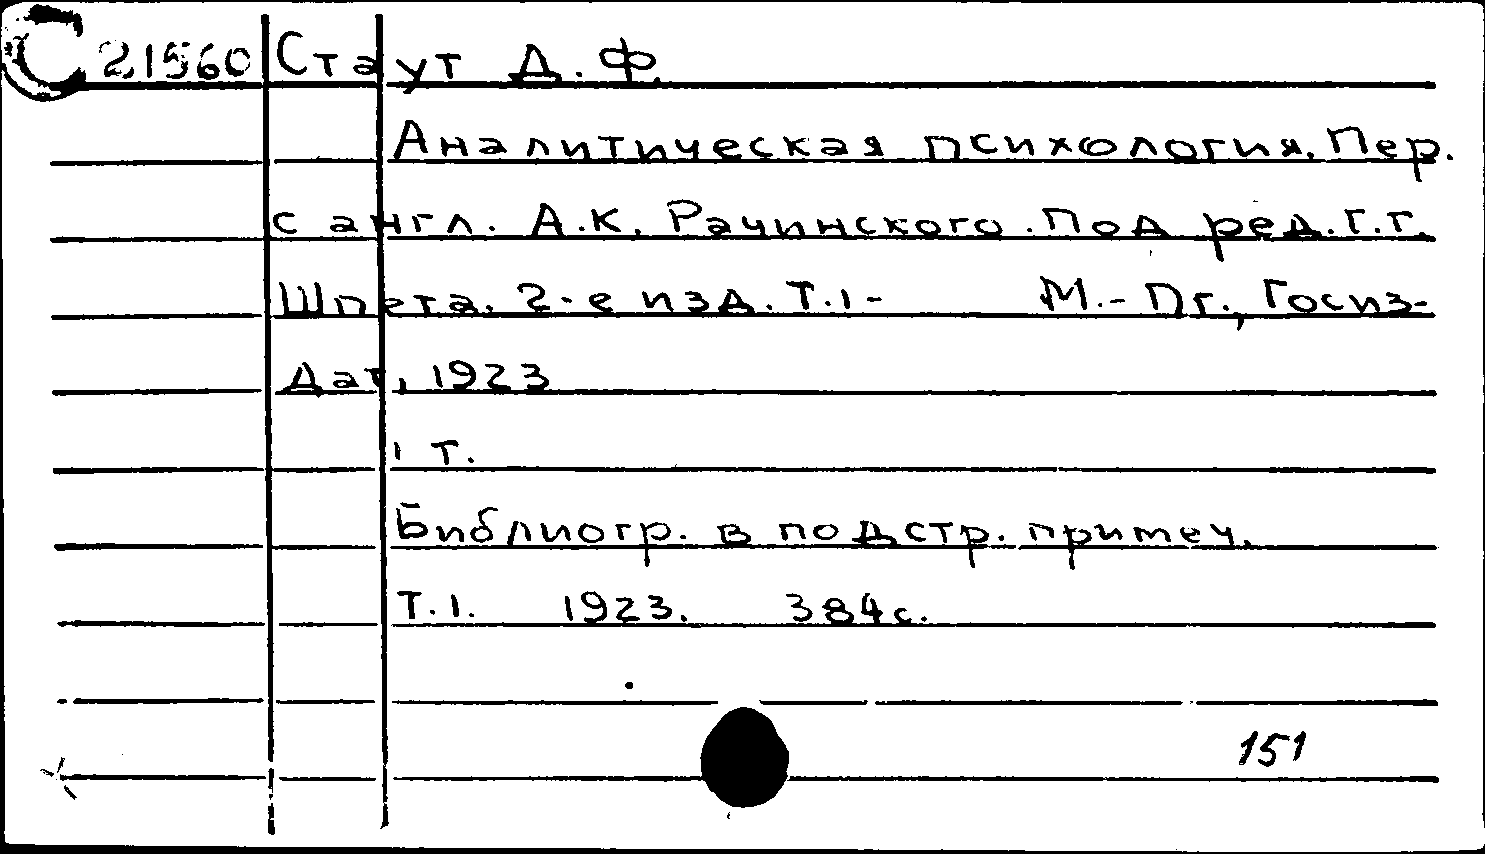 С 21560 Стаут Д. Ф.
Аналитическая психология. Пер.
с англ. А.К. Рачинского. Под ред. Г.Г.
Шпета. 2-е изд. Т.1- М.-Пг., Госиз-
дат, 1923
1 т.
Библиогр. в подстр. примеч.
Т.1. 1923. 384с.
151